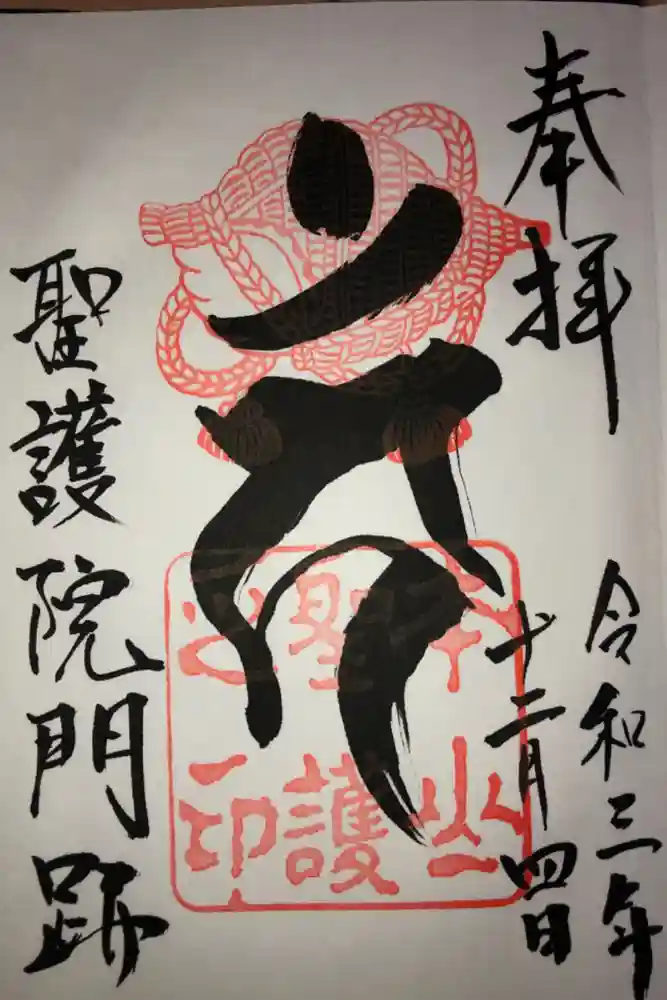 奉拝
令和三年
十二月四日
聖護院門跡
本山
聖護
之印